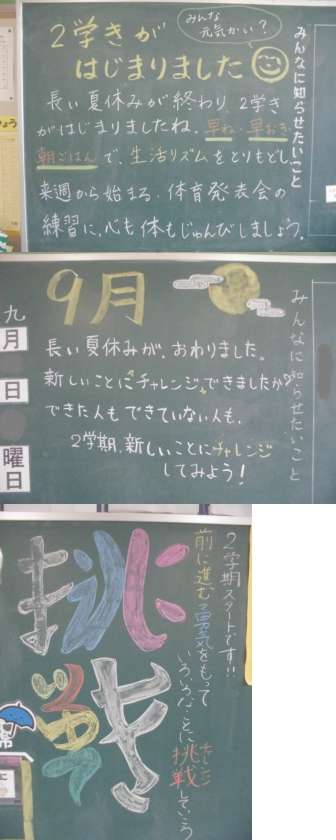 みんな
元気かい？
2学きが
はじまりました
みんなに知らせたいこと
長い夏休みが終わり、2学き
がはじまりましたね。早ね・早おき・
朝ごはんで、生活リズムをとりもどし、
来週から始まる、体育発表会の
練習に、心も体もじゅんびしましょう。
9月
みんなに知らせたいこと
九月
日
曜日
長い夏休みが、おわりました。
新しいことに"チャレンジ"できましたか?
できた人もできていない人も、
2学期、新しいことにチャレンジ
してみよう！
2学期スタートです!!
前に進む勇気をもって
いろいろなことに挑戦していこう
チャレンジ
挑戦